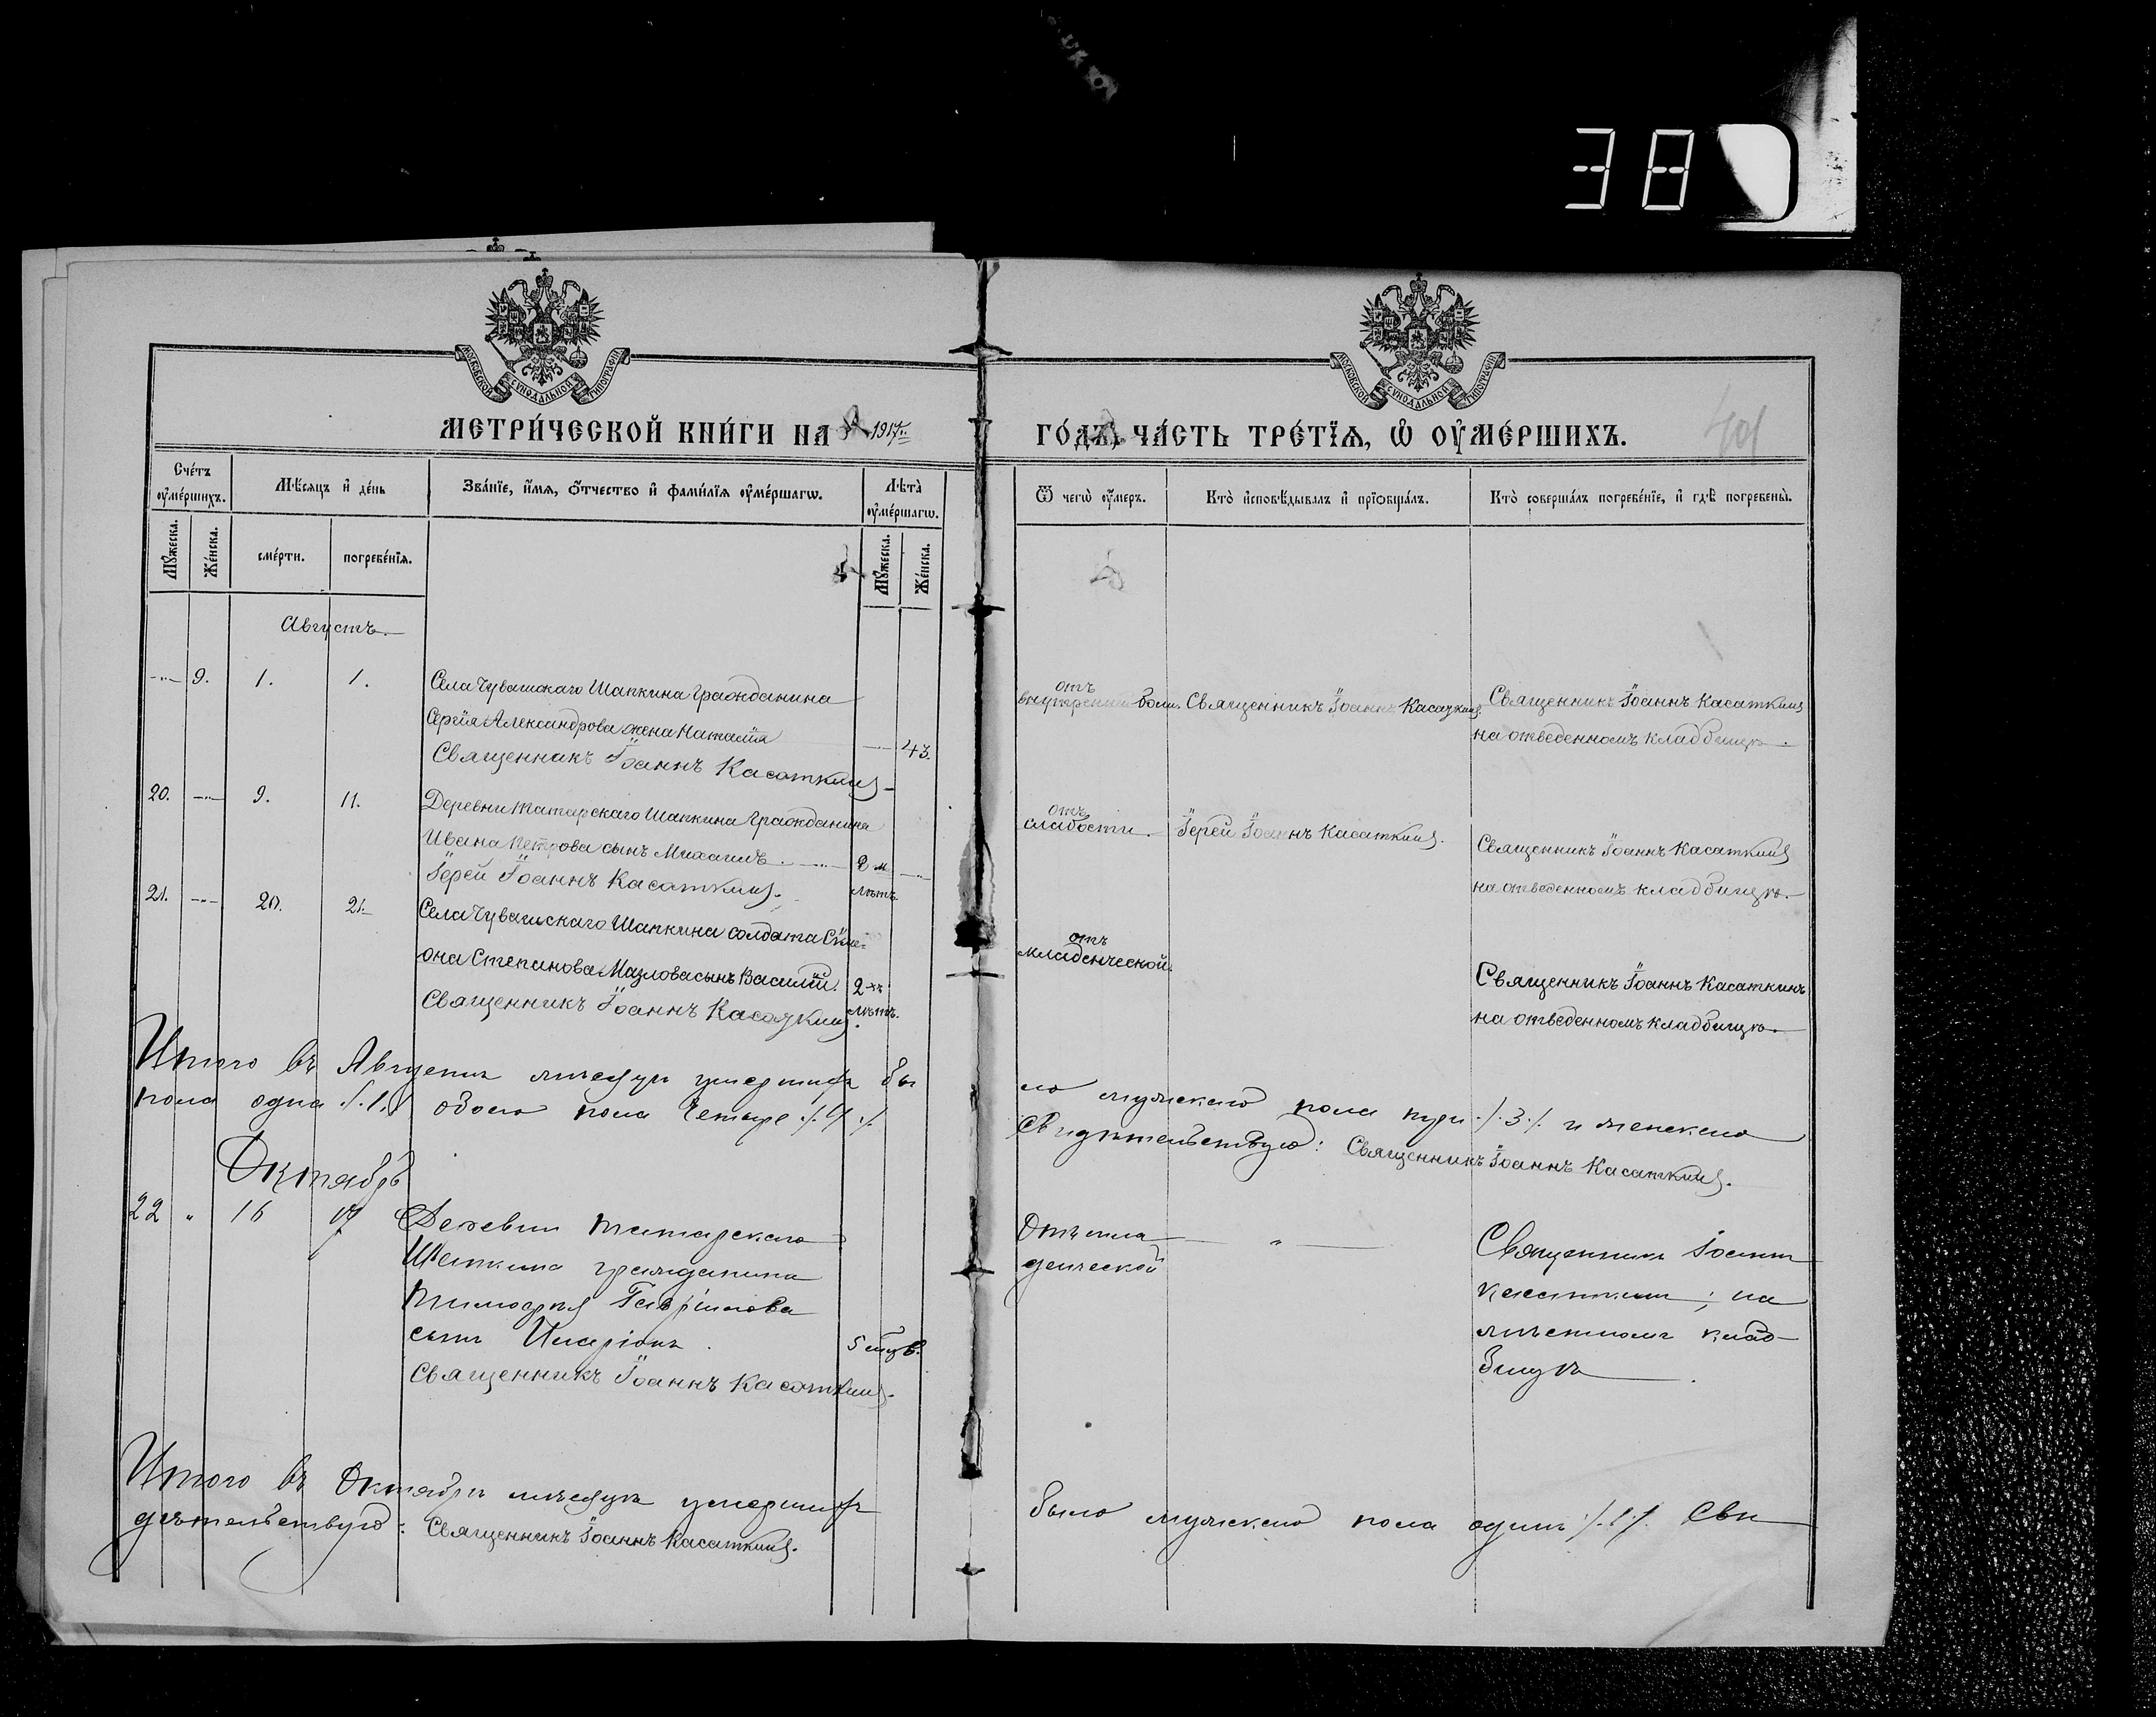 38
МОСКОВСКОЙ СѴНОДАЛЬНОЙ ТИПОГРАФІИ
МОСКОВСКОЙ СѴНОДАЛЬНОЙ ТИПОГРАФІИ
МЕТРИ́ЧЕСКОЙ КНИ́ГИ НА 1917 ГО́ДЪ, ЧА́СТЬ ТРЕ́ТЇѦ, Ѡ҆ ОУ҆МЕ́РШИХЪ.
401
Сче́тъ оу҆ме́ршихъ.
Мѣ́сяцъ и҆ де́нь
Зва́нїе, и҆́мѧ, о҆́тчество и҆ фами́лїѧ оу҆ме́ршагѡ.
Лѣ́та̀ оу҆ме́ршагѡ.
Ѿ чегѡ̀ оу҆́меръ.
Кто̀ и҆сповѣ́дывалъ и҆ прїѡбща́лъ.
Кто̀ соверша́лъ погребе́нїе, и҆ гдѣ̀ погребены̀.
Мꙋ́жеска.
Же́нска.
сме́рти.
погребе́нїѧ.
Мꙋ́жеска.
Же́нска.
Августъ.
9. 1. 1. Села Чувашскаго Шапкина гражданина
Сергія Александрова жена Наталія 43.
Священникъ Іоаннъ Касаткинъ
отъ
внутренней боли. Священникъ Іоаннъ Касаткинъ. Священникъ Іоаннъ Касаткинъ
на отведенномъ кладбищѣ.
20. 9. 11. Деревни Татарскаго Шапкина гражданина
Ивана Петрова сынъ Михаилъ. 2 м
Іерей Іоаннъ Касаткинъ. лѣтъ
отъ
слабости. Іерей Іоаннъ Касаткинъ. Священникъ Іоаннъ Касаткинъ
на отведенномъ кладбищѣ.
21. 20. 21. Села Чувашскаго Шапкина солдата Симе-
она Степанова Мазлова сынъ Василій. 2-хъ
Священникъ Іоаннъ Касаткинъ. лѣтъ.
отъ
младенческой. Священникъ Іоаннъ Касаткинъ
на отведенномъ кладбищѣ.
Итого въ Августѣ мѣсяцѣ умершихъ бы
ло мужскаго пола три ./.3./. и женскаго
пола одна ./.1./. обоего пола четыре ./.4./.
Свидѣтельствую: Священникъ Іоаннъ Касаткинъ.
Октябрь
22 " 16 17 Деревни Татарскаго
Шапкина гражданина
Тимофея Гаврилова
сынъ Иларіонъ. 5 мцв.
Священникъ Іоаннъ Касаткинъ.
Отъ мла
денческой " Священникъ Іоаннъ
Касаткинъ; на
мѣстномъ клад-
бищѣ.
Итого въ Октябрѣ мѣсяцѣ умершихъ
было мужскаго пола одинъ ./.1./. Сви
дѣтельствую: Священникъ Іоаннъ Касаткинъ.